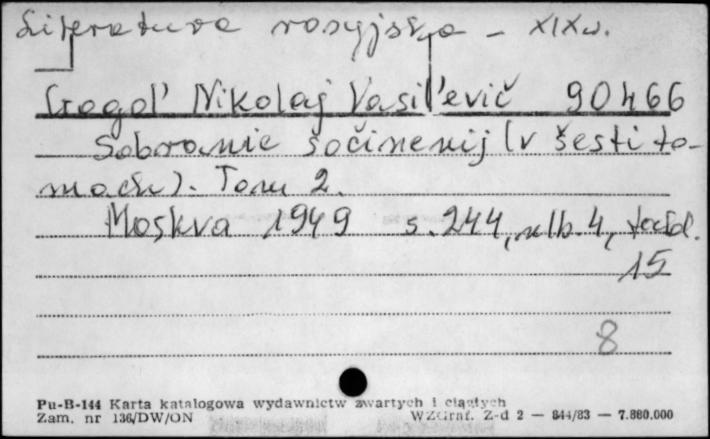 Literatura rosyjska - XIX w.
Gogol' Nikolaj Vasil'evič 90466
Sobranie sočinenij (v šesti to-
mach). Tom 2.
Moskva 1949 s. 244, nlb. 4,
15
8
Pu-B-144 Karta katalogowa wydawnictw zwartych i ciągłych
Zam. nr 136/DW/ON WZGraf. Z-d 2 — 844/83 — 7.880.000